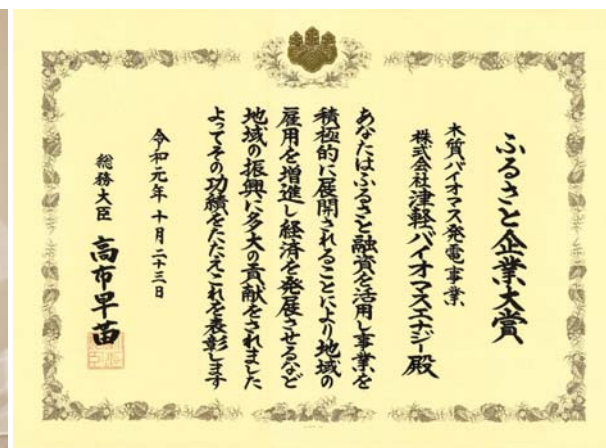 ふるさと企業大賞
木質バイオマス発電事業
株式会社津軽バイオマスエナジー殿
あなたはふるさと融資を活用し事業を
積極的に展開されることにより地域の
雇用を増進し経済を発展させるなど
地域の振興に多大の貢献をされました
よってその功績をたたえこれを表彰します
令和元年十月二十三日
総務大臣 高市早苗